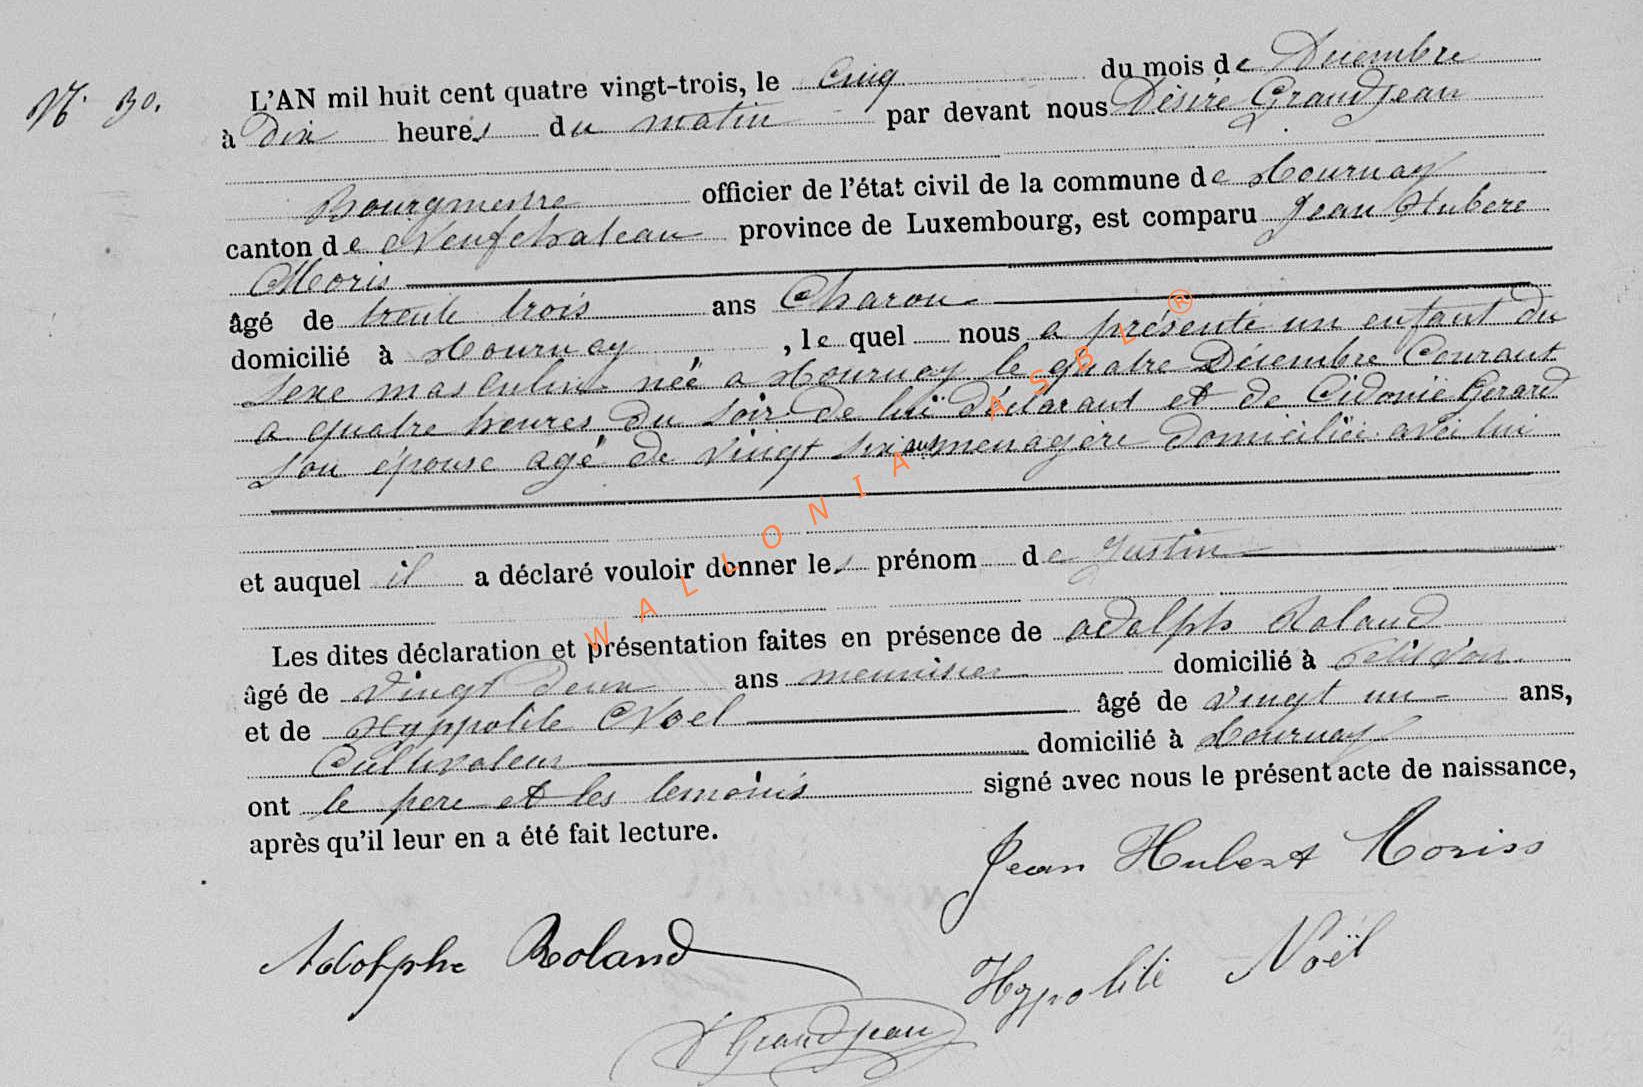 N° 30.
L'AN mil huit cent quatre vingt-trois, le Cinq du mois de Décembre
à Dix heures du matin par devant nous Désiré Grandjean
Bourgmestre officier de l'état civil de la commune de Tournay
canton de Neufchateau province de Luxembourg, est comparu Jean Hubert
Moris
âgé de trente trois ans Charon
domicilié à Tournay, le quel nous a présenté un enfant du
sexe masculin néé a Tournay le quatre Décembre Courant
a quatre heures du soir de lui déclarant et de Cidonie Gerard
son épouse agé de vingt six ans menagère domiciliée avec lui
et auquel il a déclaré vouloir donner les prénom de Justin
Les dites déclaration et présentation faites en présence de adolphe Roland
âgé de vingt deux ans meunisier domicilié à Petitvoir
et de Hyppolite Noel âgé de vingt un ans,
Cultivateur domicilié à Tournay
ont le pere et les temoins signé avec nous le présent acte de naissance,
après qu'il leur en a été fait lecture.
Jean Hubert Moriss
Adolphe Roland
Hyppolite Noël
D Grandjean
WALLONIA ASBL ®